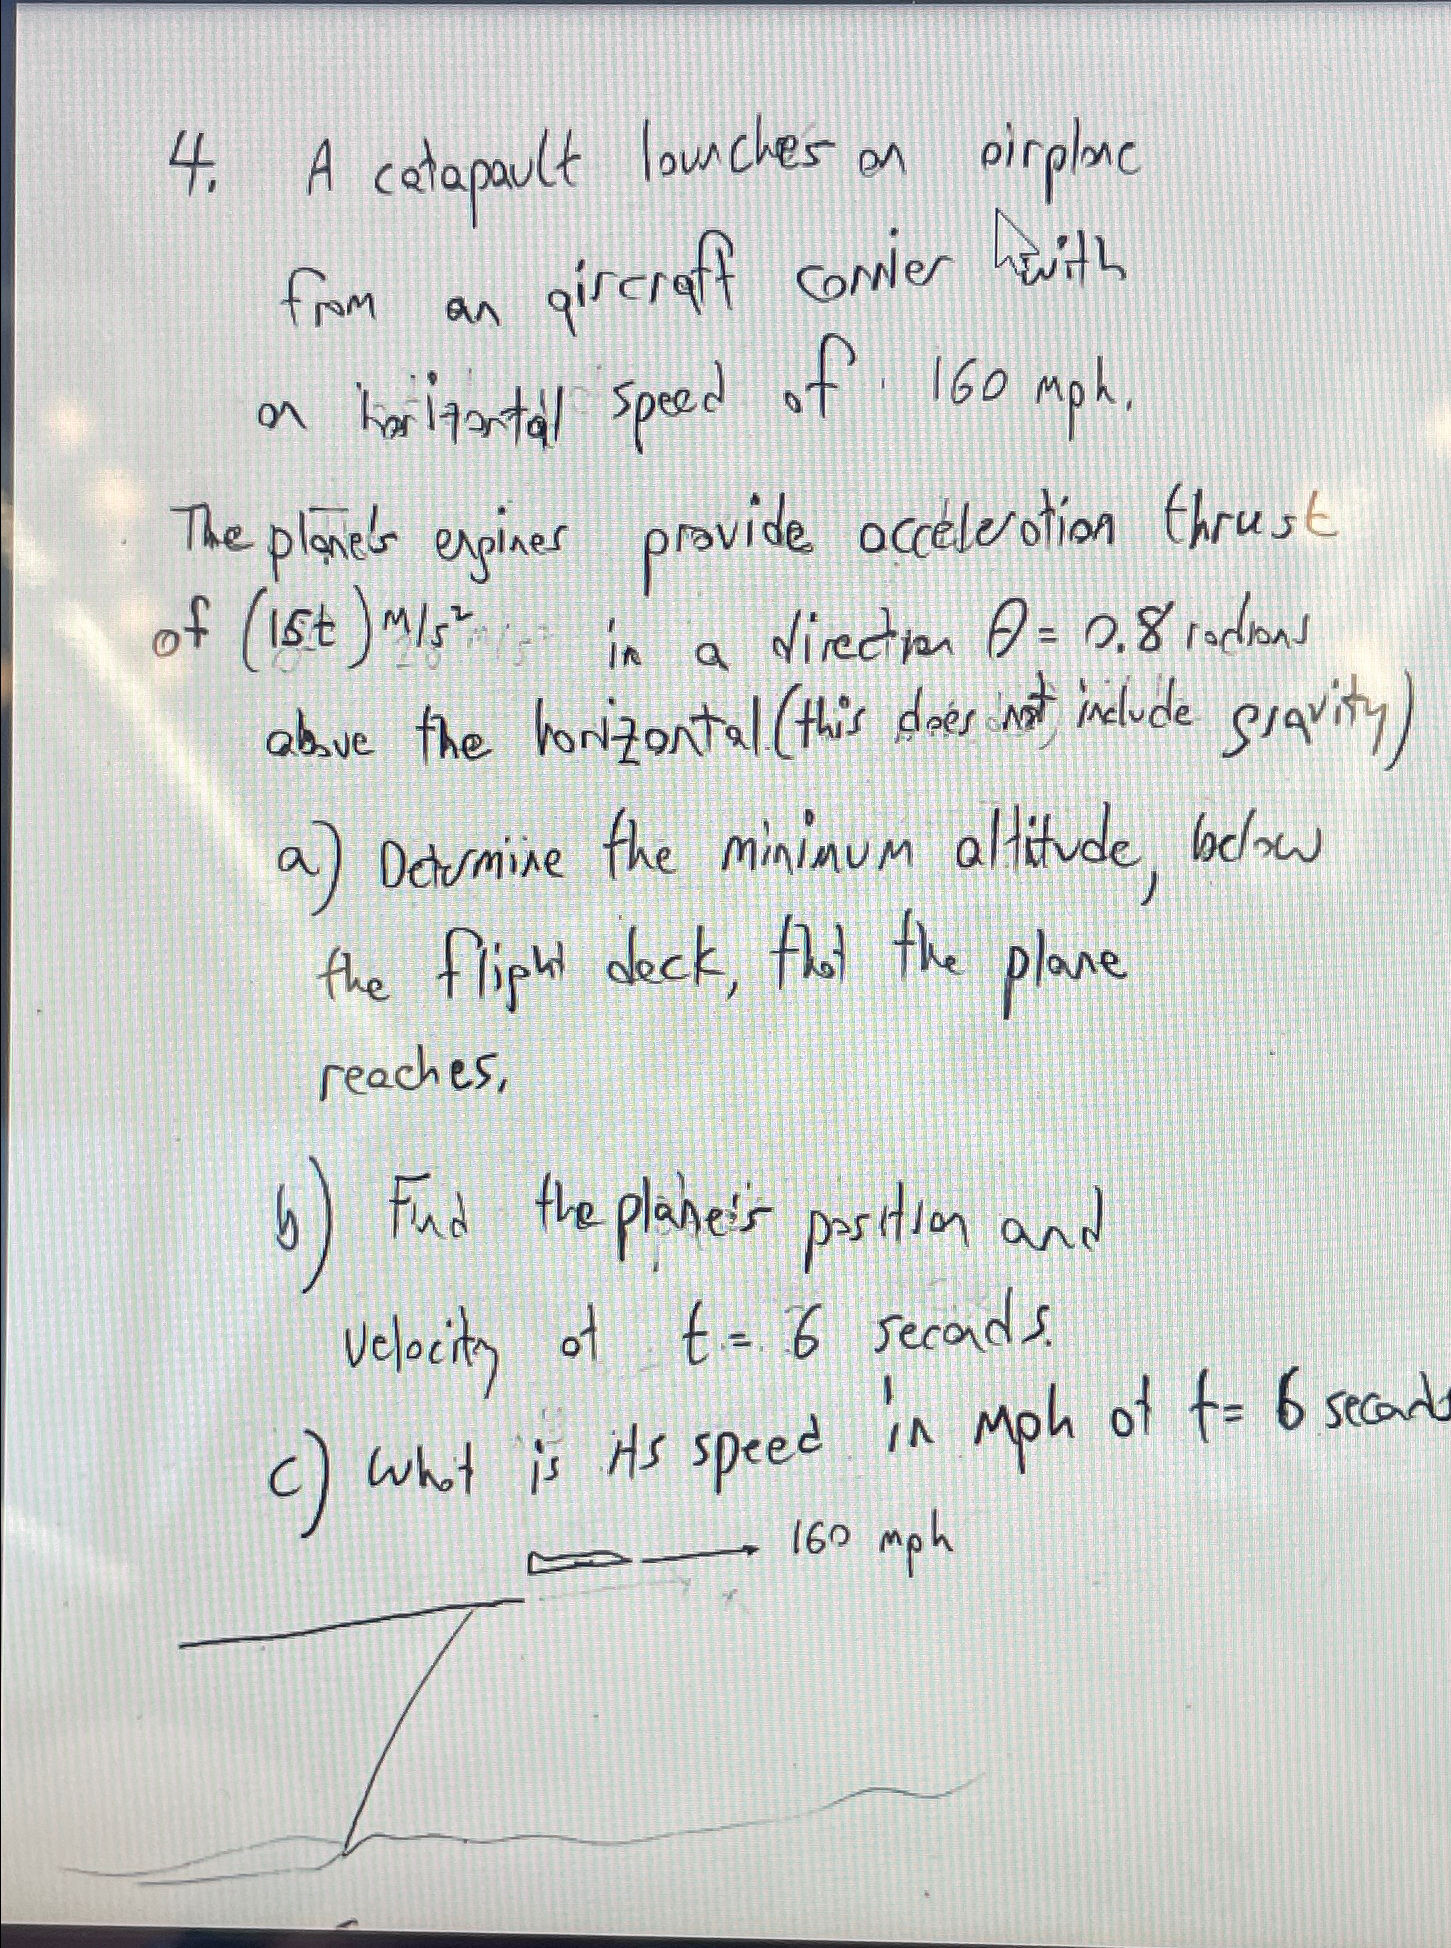 4. A catapault launches an airplane
from an aircraft carrier with
an horizontal speed of 160 mph.
The plane's engines provide acceleration thrust
of (15t) m/s² in a direction θ = 0.8 radians
above the horizontal (this does not include gravity)
a) Determine the minimum altitude, below
the flight deck, that the plane
reaches.
b) Find the plane's position and
velocity at t = 6 seconds.
c) What is its speed in mph at t = 6 seconds
160 mph